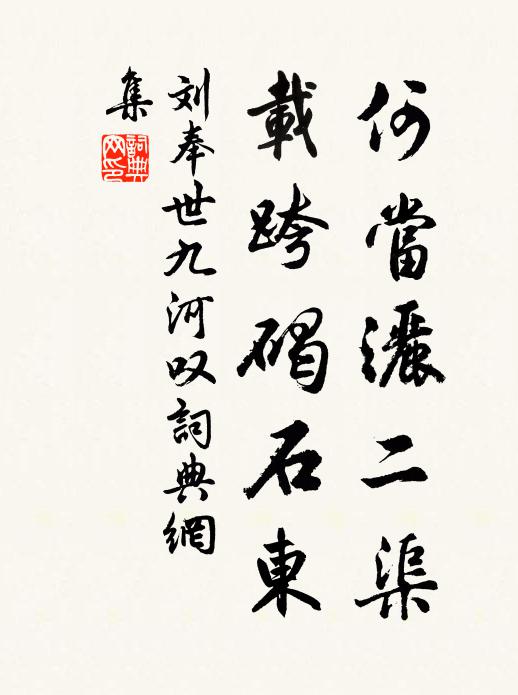 何當灑二渠
載跨碣石東
刘奉世九河叹詞典網
集
詞典网印